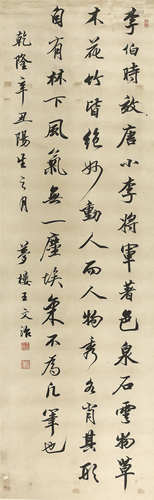 李伯時效唐小李將軍著色泉石雲物草
木花竹皆絕妙動人而人物秀各肖其形
自有林下風氣無一塵埃氣不為凡筆也
乾隆辛丑陽生之月 夢樓王文治